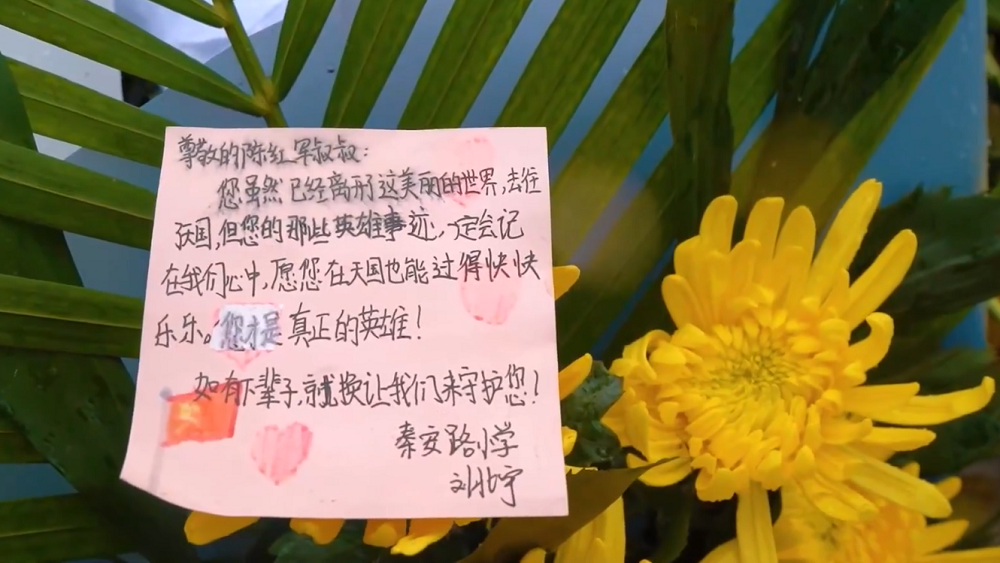 尊敬的陈红军叔叔:
您虽然已经离开这美丽的世界,去往
天国,但您的那些英雄事迹,一定会记
在我们心中,愿您在天国也能过得快快
乐乐。您才是真正的英雄!
如有下辈子,就换让我们来守护您!
秦安路小学
刘北宇